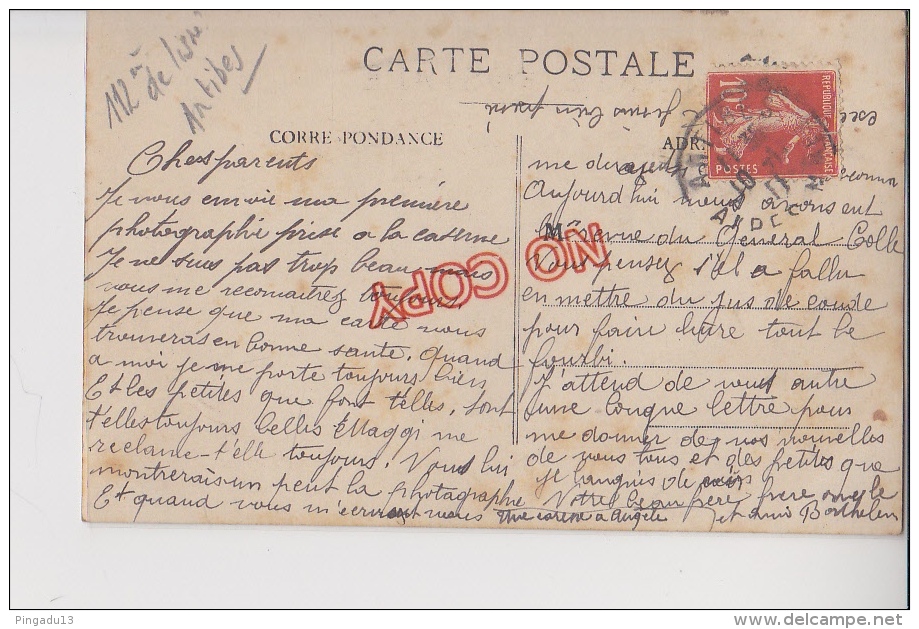 112 de ligne
Antibes
CARTE POSTALE
CORRESPONDANCE
ADR
REPUBLIQUE FRANÇAISE
10c
POSTES
NO COPY
M
Chers parents
Je vous envoie ma première
photographie prise a la caserne
Je ne suis pas trop beau mais
vous me reconnaitrez toujours,
Je pense que ma carte vous
trouveras en bonne sante. Quand
a moi je me porte toujours bien
Et les petites que font t'elles, sont
t'elles toujours belles Maggi me
reclame-t'elle toujours. Vous lui
montrerais un peut la photagraphe
Et quand vous m'ecrirez vous
me direz
Aujourd'hui nous avons ent
la revue du General Colle
Vous pensez s'il a fallu
en mettre du jus de coude
pour faire luire tout le
fourbi.
J'attend de vous autre
une longue lettre pour
me donner de vos nouvelles
de vous tous et des petites que
je languis de
Votre beau frère frere oncle
et ami
Une caresse a Angèle
Pingadu13
http://www.delcampe.net